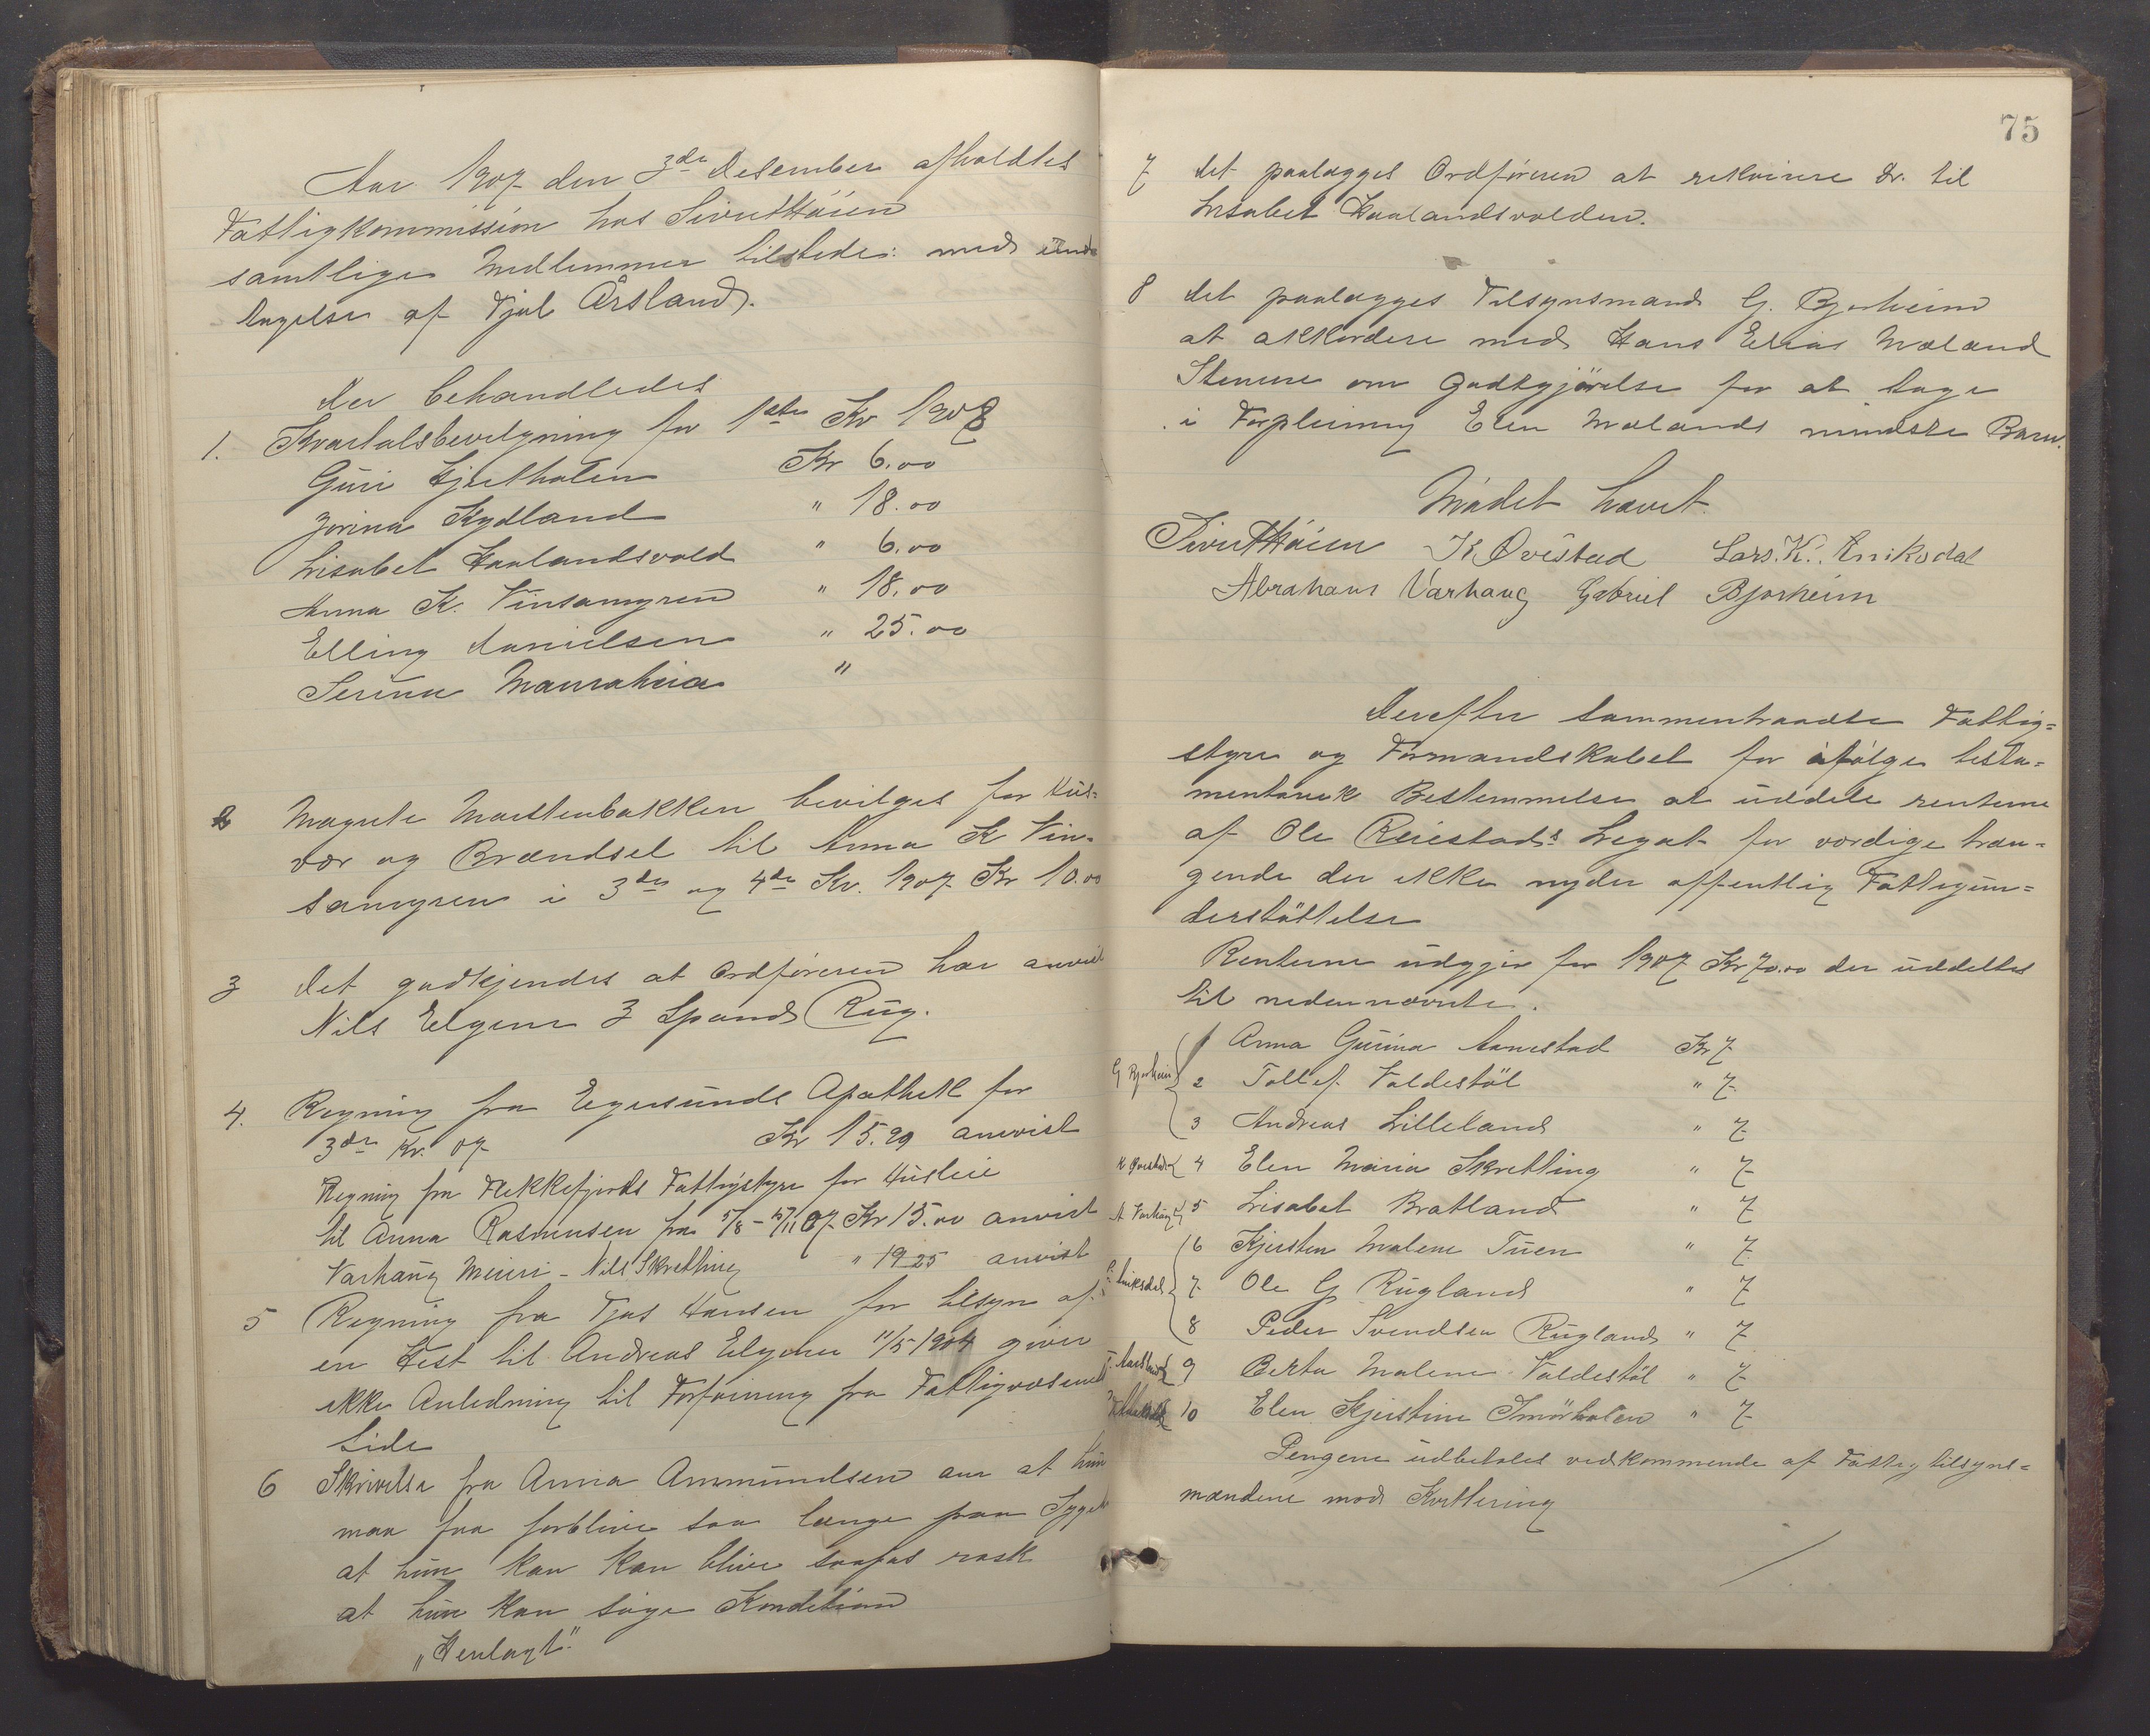 Aar 1907 den 3de Desember afholdtes
Fattigkommission hos Sivert Høien
samtlige Medlemmer tilstede: med und-
tagelse af Tjøl Årsland.
Der behandledes
1. Kvartalsbevilgning for 1ste Kv 1908
Guri Hjertholen Kr 6.00
Jorina Rydland " 18.00
Lisabet Haalandsvold " 6.00
Anna K. Vinsamyren " 18.00
Elling Danielsen " 25.00
Serina Mauraheia "
2 Magrete Mostenbakken bevilges for Hus-
vær og Brændsel til Anna K Vin-
samyren i 3de og 4de Kv. 1907 Kr 10.00
3 Det godkjendes at Ordføreren har anvist
Nils Elgene 3 Spand Rug.
4. Regning fra Egersunds Apothek for
3de Kv. 07 Kr 15.29 anvist
Regning fra Flekkefjords Fattigstyre for Husleie
til Anna Rasmussen fra 5/8 - 5/11 07 Kr 15.00 anvist
Varhaug Meieri - Nils Skretting " 19.25 anvist
5 Regning fra Tjøs Hansen for tilsyn af
en Hest til Andreas Elgene 11/5 1904 giver
ikke Anledning til Forføining fra Fattigvæsenets
Side
6 Skrivelse fra Anna Ammundsen om at hun
maa faa forblive saa længe paa Sygeh
at hun kan kan blive saapas rask
at hun kan søge Kondition
"Henlagt".
75
7 Det paalægges Ordføreren at rekvirere Dr. til
Lisabet Haalandsvolden.
8 Det paalægges Tilsynsmand G. Bjorheim
at akkordere med Hans Elias Mæland
Stenene om Godtgjørelse for at tage
i Forpleining Elen Mælands mindste Barn.
Mødet hævet.
Sivert Høien K. Øvestad Lars. K. Eriksdal
Abraham Varhaug Gabriel Bjorheim
Derefter sammentraadte Fattig=
styre og Formandskabet for ifølge testa=
mentarisk Bestemmelse at uddele renterne
af Ole Reiestads Legat for værdige træn=
gende der ikke nyder offentlig Fattigun=
derstøttelse
Renterne udgjør for 1907 Kr 70.00 der uddeltes
til nedennævnte.
1 Anna Gurina Aanestad Kr 7
G Bjorheim 2 Tollef. Valdestøl " 7
3 Andreas Lilleland " 7
K Øvestad 4 Elen Maria Skretting " 7
A Varhaug 5 Lisabet Bratland " 7
6 Kjersten Malene Tuen " 7
Eriksdal 7 Ole G Rugland " 7
8 Peder Svendsen Rugland " 7
T. Aarsland 9 Berta Malene Valdestøl " 7
10 Elen Kjerstine Smørholen " 7
Pengene udbetales vedkommende af Fattigtilsyns=
mændene mod Kvittering